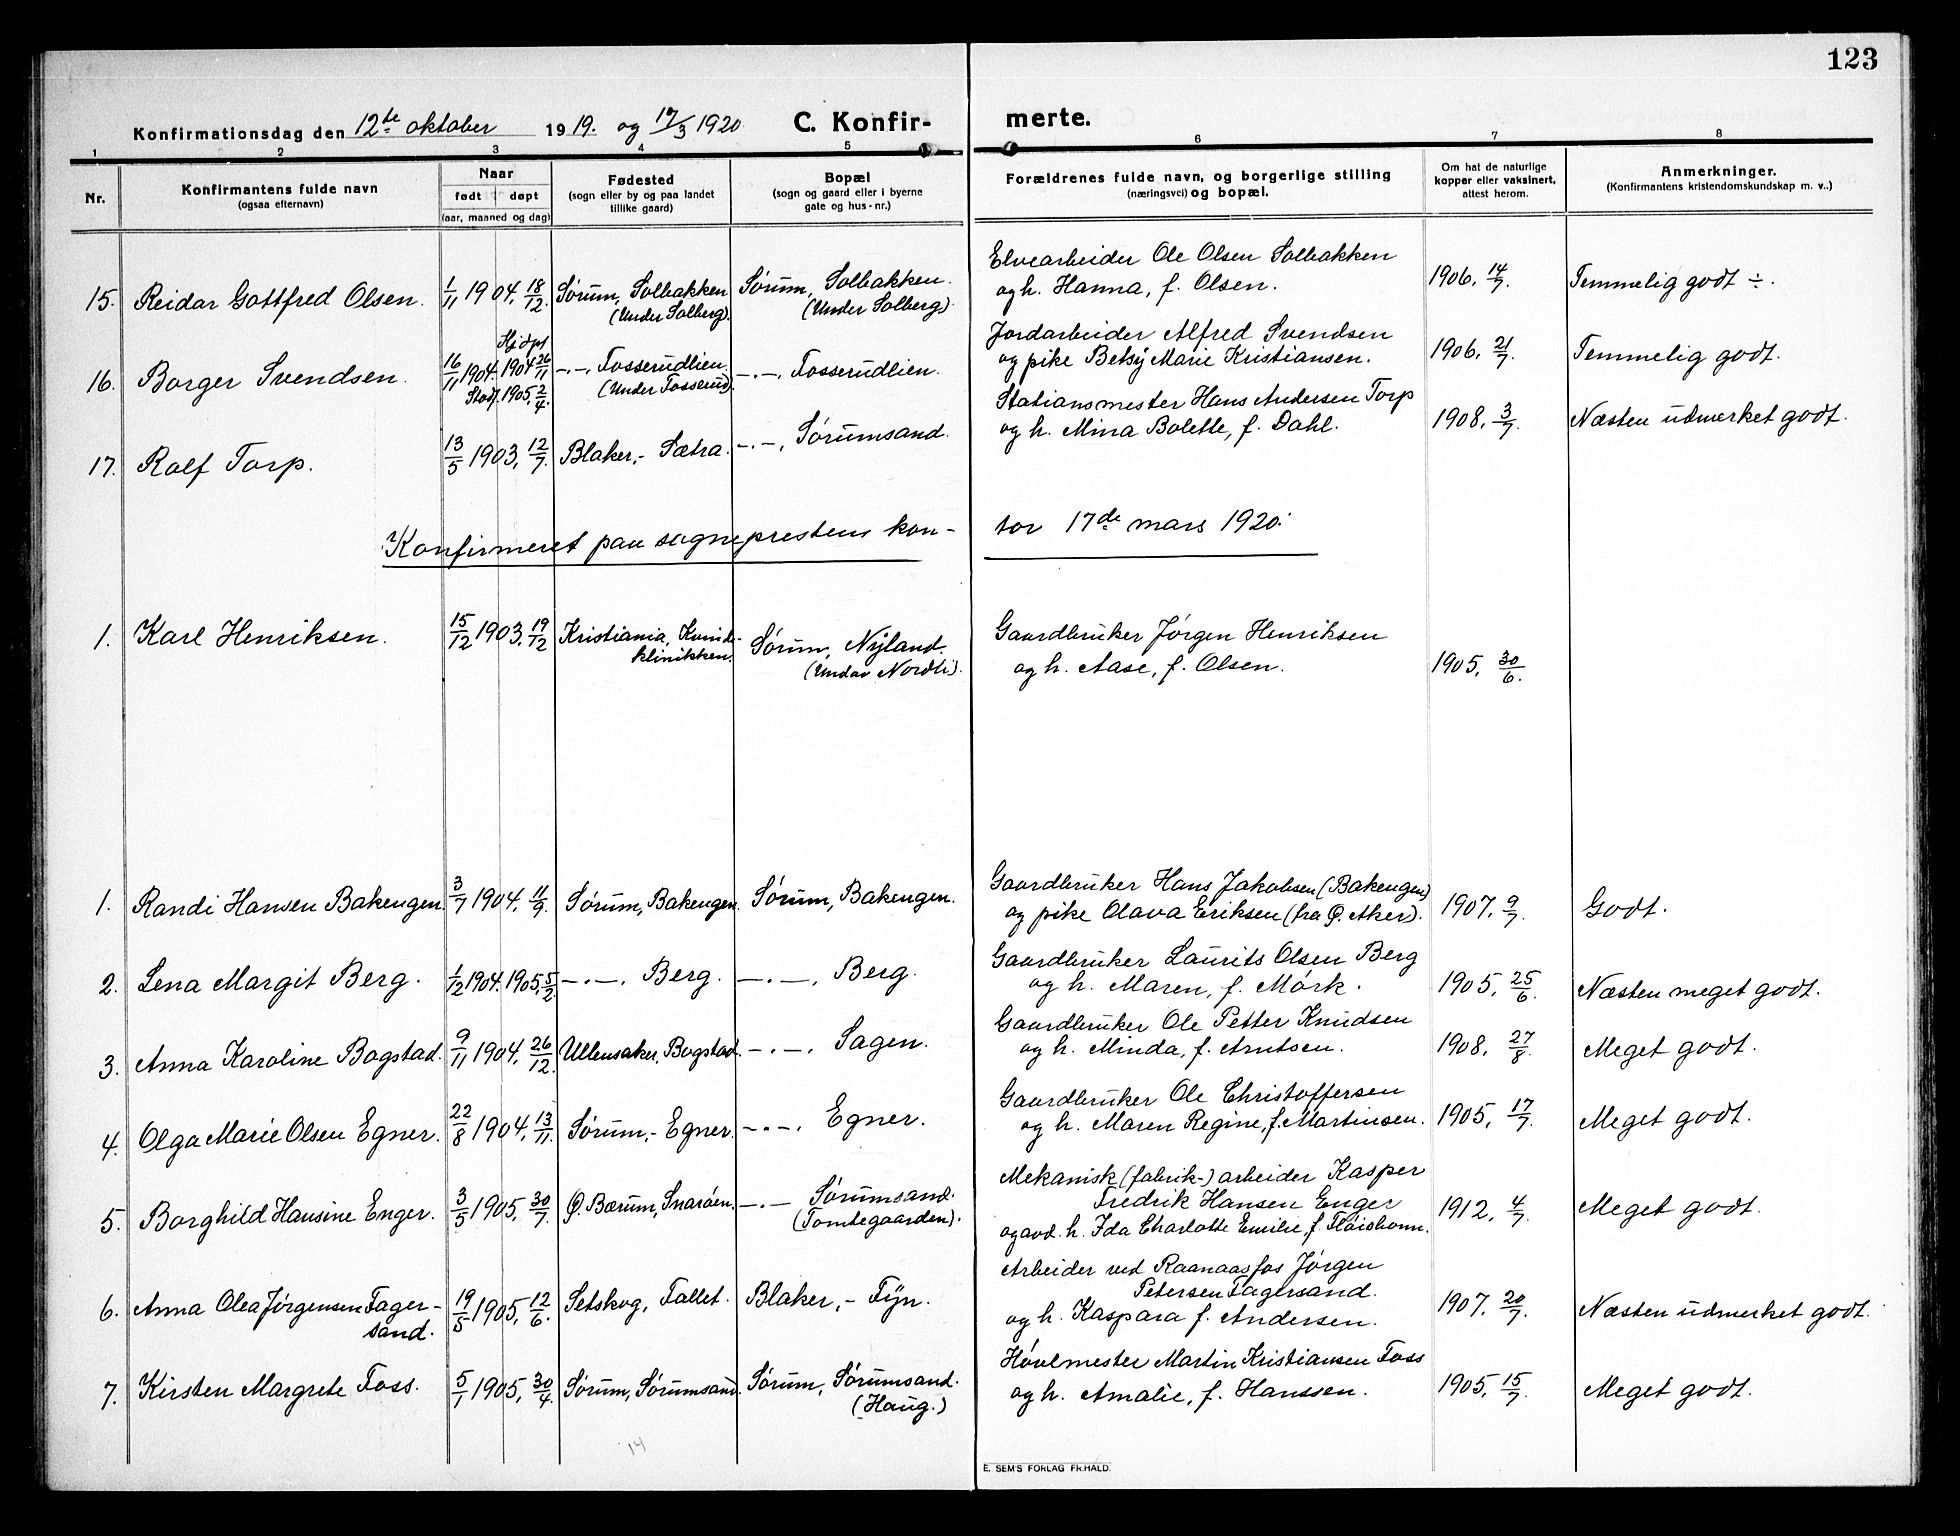 123
Konfirmationsdag den 12te oktober 1919. og 17/3 1920. C. Konfirmerte.
1 2 3 4 5 6 7 8
Nr.
Konfirmantens fulde navn
(ogsaa efternavn)
Naar
født døpt
(aar, maaned og dag)
Fødested
(sogn eller by og paa landet
tillike gaard)
Bopæl
(sogn og gaard eller i byerne
gate og hus-nr.)
Forældrenes fulde navn, og borgerlige stilling
(næringsvei) og bopæl.
Om hat de naturlige
kopper eller vaksinert,
attest herom.
Anmerkninger.
(Konfirmantens kristendomskundskap m. v..)
15. Reidar Gottfred Olsen. 1/11 1904. 18/12. Sørum, Solbakken (Under Solberg). Sørum, Solbakken. (Under Solberg).
Elvearbeider Ole Olsen Solbakken
og h. Hanna, f. Olsen. 1906. 14/7. Temmelig godt ÷.
16. Borger Svendsen. 16/11 1904. Hjdpt 1904 26/11 Stadf. 1905, 2/4. -"- Fosserudlien. (Under Fosserud). -"-, Fosserudlien.
Jordarbeider Alfred Svendsen
og pike Betsy Marie Kristiansen. 1906. 21/7. Temmelig godt.
17. Rolf Torp. 13/5 1903, 12/7. Blaker,- Sætra. -"-, Sørumsand.
Stationsmester Hans Andersen Torp
og h. Mina Bolette, f. Dahl. 1908. 3/7. Næsten udmerket godt.
Konfirmeret paa sogneprestens kontor 17de mars 1920.
1. Karl Henriksen. 15/12 1903. 19/12 Kristiania, Kvindeklinikken. Sørum, Nyland. (Under Nordli).
Gaardbruker Jørgen Henriksen
og h. Aase, f. Olsen. 1905, 30/6.
1. Randi Hansen Bakengen. 3/7 1904, 11/9. Sørum, Bakengen. Sørum, Bakengen.
Gaardbruker Hans Jakobsen (Bakengen)
og pike Olava Eriksen (fra Ø. Aker). 1907. 9/7. Godt.
2. Lena Margit Berg. 1/12 1904. 1905, 5/2 -"-, Berg. -"-, Berg.
Gaardbruker Laurits Olsen Berg
og h. Maren, f. Mørk. 1905, 25/6. Næsten meget godt.
3. Anna Karoline Bogstad. 9/11 1904. 26/12. Ullensaker, Bogstad. -"-, Sagen.
Gaardbruker Ole Petter Knudsen
og h. Minda, f. Arntsen. 1908. 27/8 Meget godt.
4. Olga Marie Olsen Egner. 22/8 1904, 13/11. Sørum,- Egner. -"-, Egner.
Gaardbruker Ole Christoffersen
og h. Maren Regine, f. Martinsen. 1905, 17/7. Meget godt.
5. Borghild Hansine Enger. 3/5 1905, 30/7. Ø. Bærum, Snarøen. -"- Sørumsand. (Tomtegaarden).
Mekanisk (fabrik-) arbeider Kasper
Fredrik Hansen Enger
og avd. h. Ida Charlotte Emilie, f. Fløishonn. 1912, 4/7. Meget godt.
6. Anna Olea Jørgensen Fagersand. 19/5 1905, 12/6. Setskog, Fallet. Blaker,- Fyn.
Arbeider ved Raanaasfos Jørgen
Petersen Fagersand.
og h. Kaspara f. Andersen. 1907. 20/7. Næsten udmerket godt.
7. Kirsten Margrete Foss. 5/1 1905, 30/4. Sørum, Sørumsand. Sørum, Sørumsand. (Haug.)
Høvlmester Martin Kristiansen Foss
og h. Amalie, f. Hanssen. 1905, 15/7. Meget godt.
14
E. SEM'S FORLAG FR.HALD.